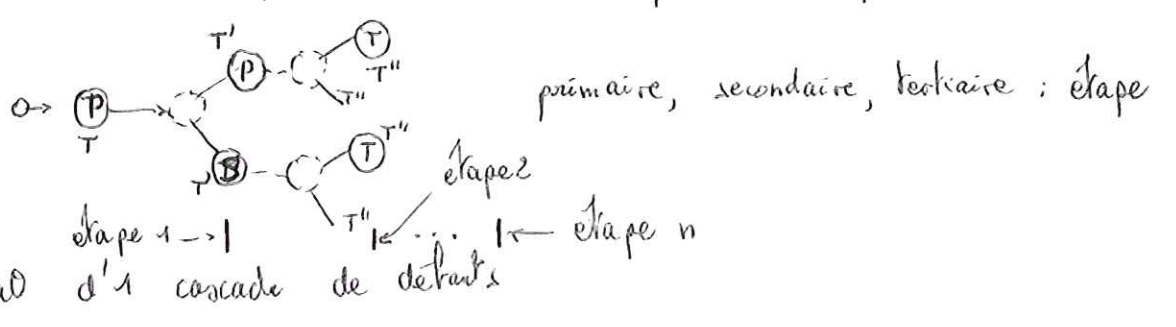 T' T
P T"
O→ P T" primaire, secondaire, tertiaire : étape
T
T"
T' T
étape 2
T"
étape 1 → | |← ... |← étape n
d'1 cascade de défauts